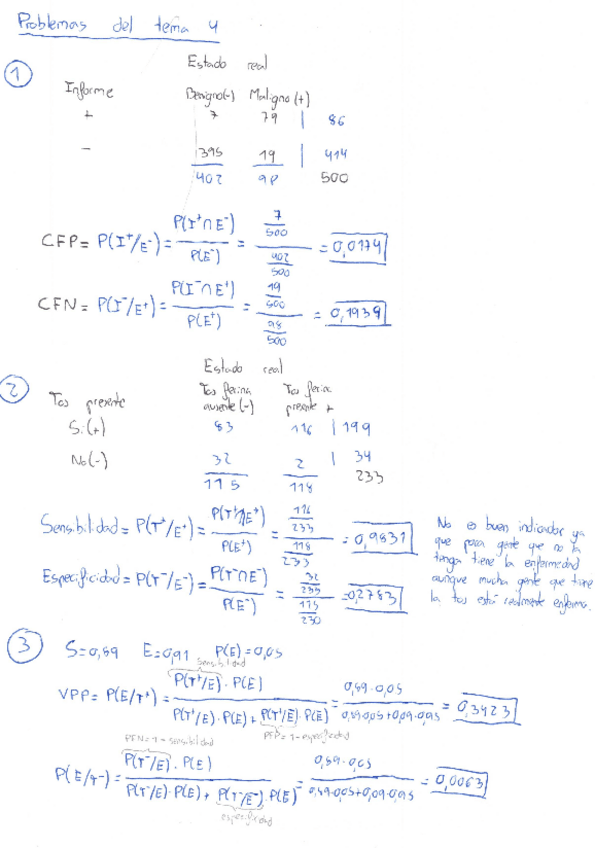 Problemas del tema 4
1
Estado real
Informe Benigno(-) Maligno(+)
+ 7 79 | 86
- 395 19 | 414
402 98 500
CFP = P(I⁺/E⁻) = P(I⁺∩E⁻) / P(E⁻) = (7/500) / (402/500) = 0,0174
CFN = P(I⁻/E⁺) = P(I⁻∩E⁺) / P(E⁺) = (19/500) / (98/500) = 0,1939
2
Estado real
Tos presente Tos ferina ausente(-) Tos ferina presente +
Si(+) 83 116 | 199
No(-) 32 2 | 34
115 118 233
Sensibilidad = P(T⁺/E⁺) = P(T⁺∩E⁺) / P(E⁺) = (116/233) / (118/233) = 0,9831
Especificidad = P(T⁻/E⁻) = P(T⁻∩E⁻) / P(E⁻) = (32/233) / (115/230) = 0,2783
No es buen indicador ya
que para gente que no la
tenga tiene la enfermedad
aunque mucha gente que tiene
la tos está realmente enferma.
3
S=0,89 E=0,91 P(E)=0,05
sensibilidad
VPP = P(E/T⁺) = P(T⁺/E)·P(E) / P(T⁺/E)·P(E) + P(T⁺/E)·P(E) = 0,89·0,05 / 0,89·0,05+0,09·0,95 = 0,3423
PFN=1-sensibilidad PFP=1-especificidad
P(E/T⁻) = P(T⁻/E)·P(E) / P(T⁻/E)·P(E) + P(T⁻/E⁻)·P(E) = 0,89·0,05 / 0,89·0,05+0,09·0,95 = 0,0063
especificidad